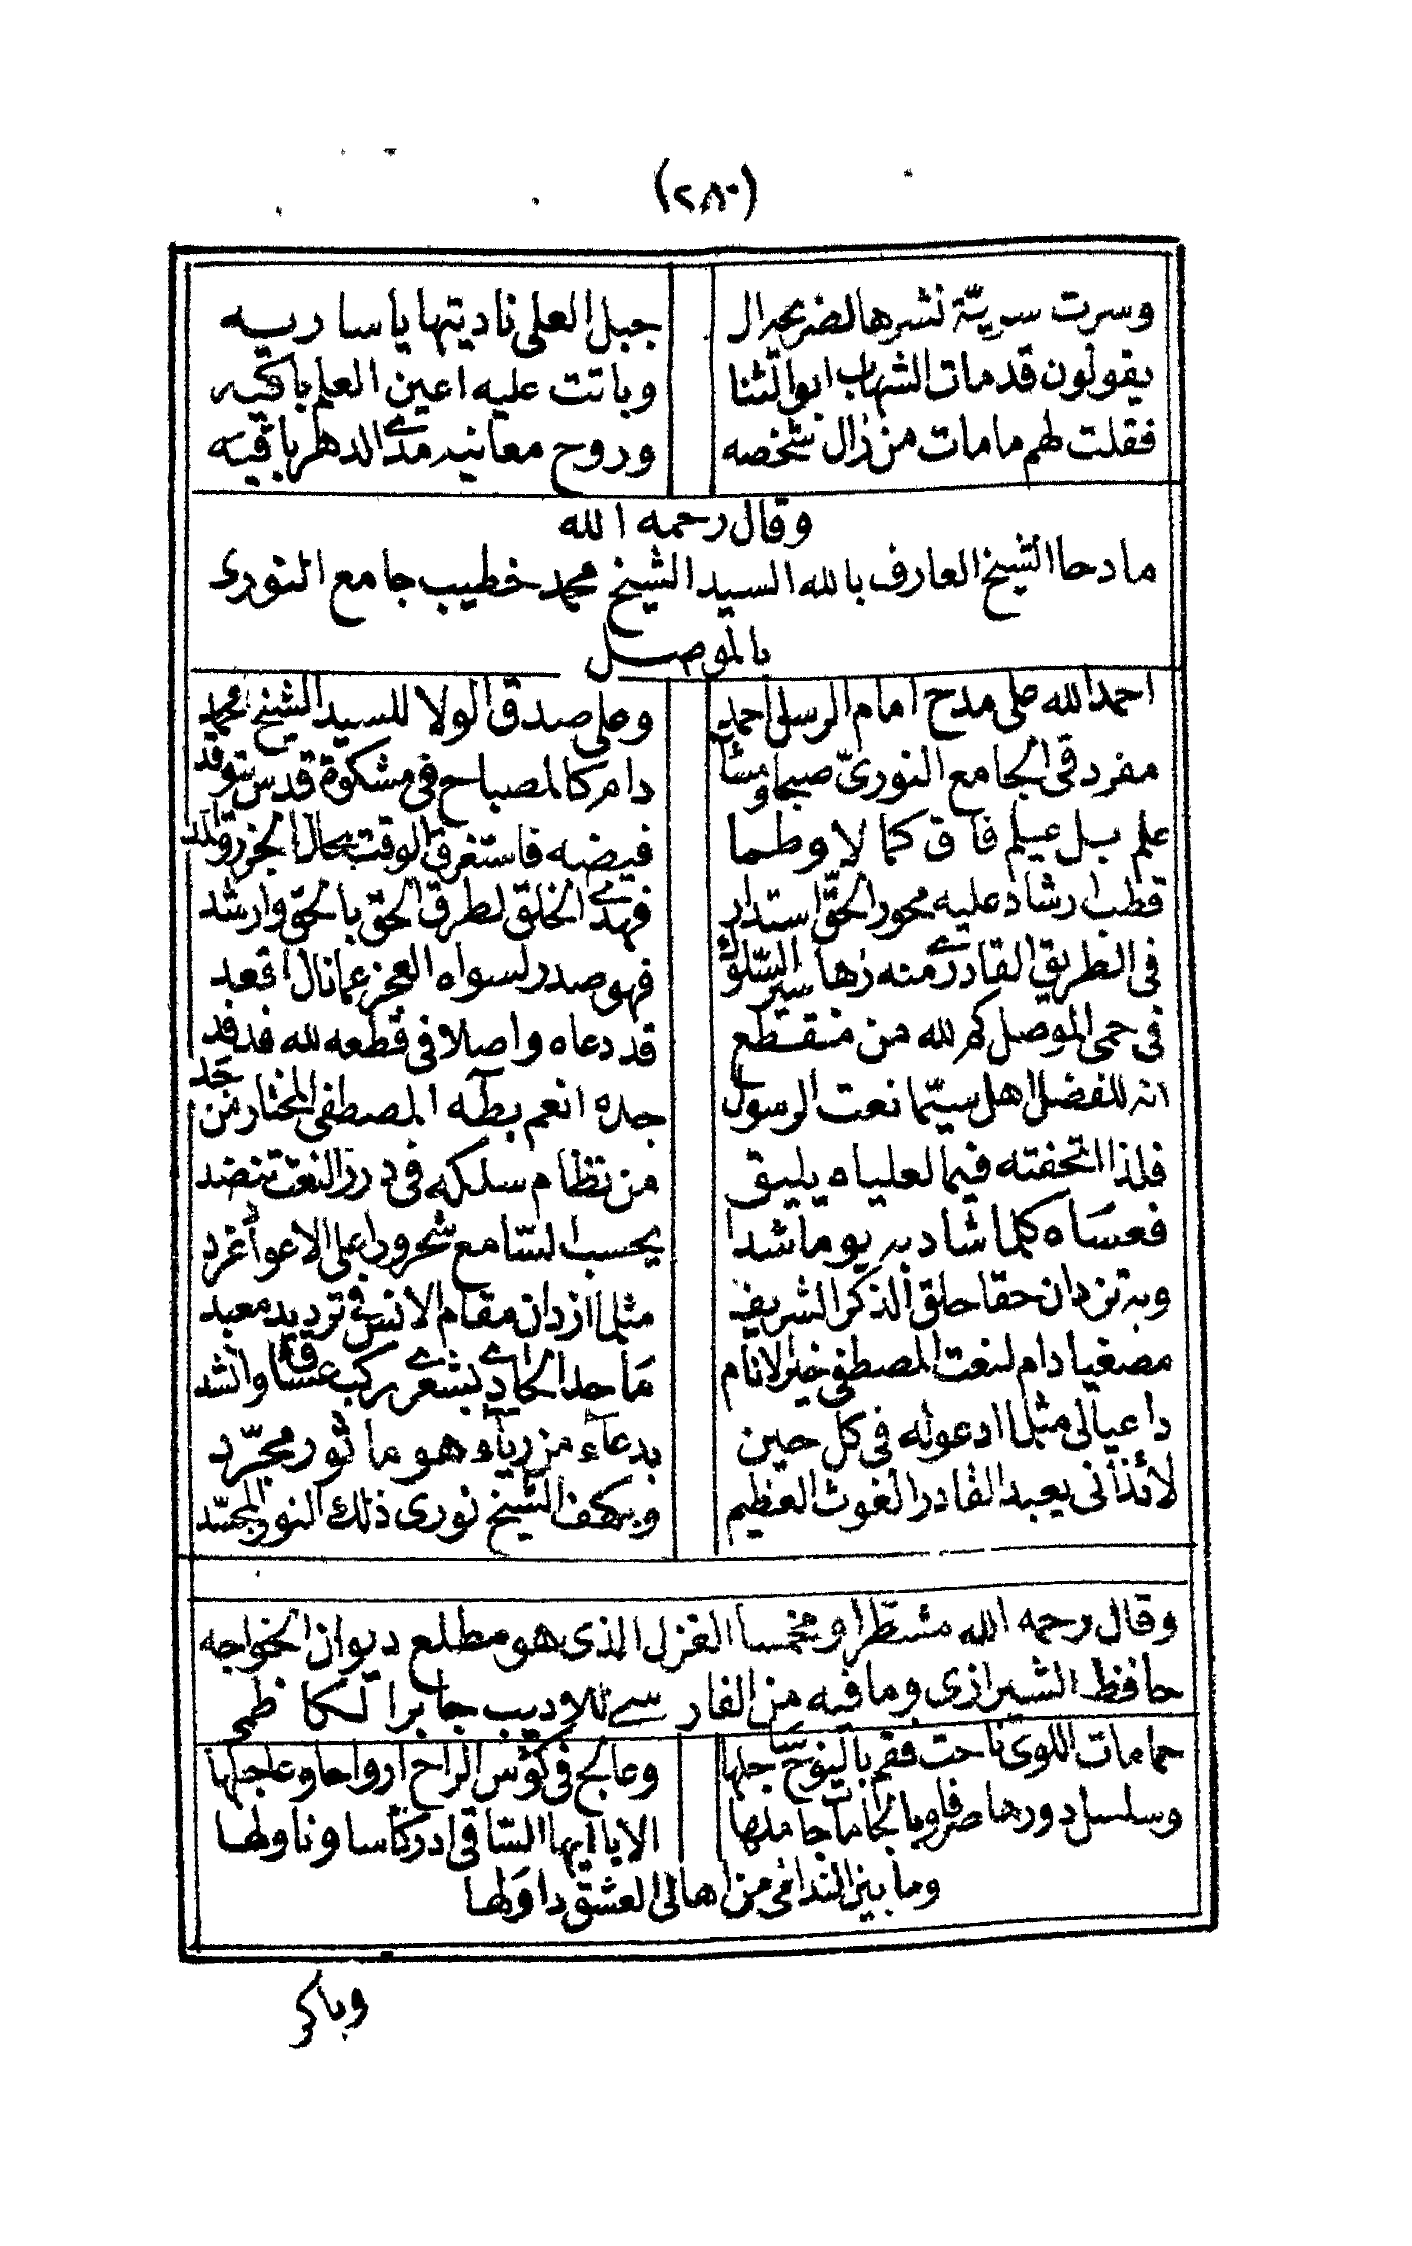 (٢٨٠)
وسرت سريّة نشرها لضريحه ال جبل العلى ناديتها يا ساريه
يقولون قد مات الشهاب ابو الثنا وباتت عليه اعين العلم باكيه
فقلت لهم ما مات من زال شخصه وروح معانيه مدى الدهر باقيه
وقال رحمه الله
مادحا الشيخ العارف بالله السيد الشيخ محمد خطيب جامع النورى
بالموصل
احمد الله على مدح امام الرسل احمد وعلى صدق الولا للسيد الشيخ محمد
مفرد فى الجامع النورىّ صبحا ومسا دام كالمصباح فى مشكوة قدس توقد
علم بل عيلم فاق كما لا وطما فيضه فاستغرق الوقت بحال الجزر والمد
قطب ارشاد عليه محور الحق استدار فهدى الخلق لطرق الحق بالحق وارشد
فى الطريق القادرى منه زها سير السّلوك فهو صدر لسواه العجز عما نال اقعد
فى حمى الموصل كم لله من منقطع قد دعاه واصلا فى قطعه لله فدفد
انه للفضل اهل سيّما نعت الرسول جده انعم بطه المصطفى المختار من جد
فلذا اتحفته فيما لعلياه يليق من نظام سلكه فى درر النعت تنضد
فعساه كلما شاد به يوما شدا يحسب السّامع شحرورا على الاعواد غرد
وبه تزدان حقا حلق الذكر الشريف مثلما ازدان مقام الانس فى ترديد معبد
مصغيا دام لنعت المصطفى خير الانام ما حدا الحادى بشعرى ركب عشاق وانشد
داعيا لى مثلما ادعو له فى كل حين بدعاء من رياء وهو ماثور مجرّد
لائذا نى بعبد القادر الغوث العظيم وبكهف الشيخ نورى ذلك النور المجسّد
وقال رحمه الله مشطرا ومخمسا الغزل الذى هو مطلع ديوان الخواجه
حافظ الشيرازى وما فيه من الفارسى للاديب جابر الكاظمى
حمامات اللوى ناحت فقم بالنوح ساجلها وعالج فى كؤس الراح ارواحا وعاجلها
وسلسل دورها صرفا وبالجامات جاملها الا يا ايها السّاقى ادر كأسا وناولها
وما بين الندامى من اهالى العشق داولها
وباكر